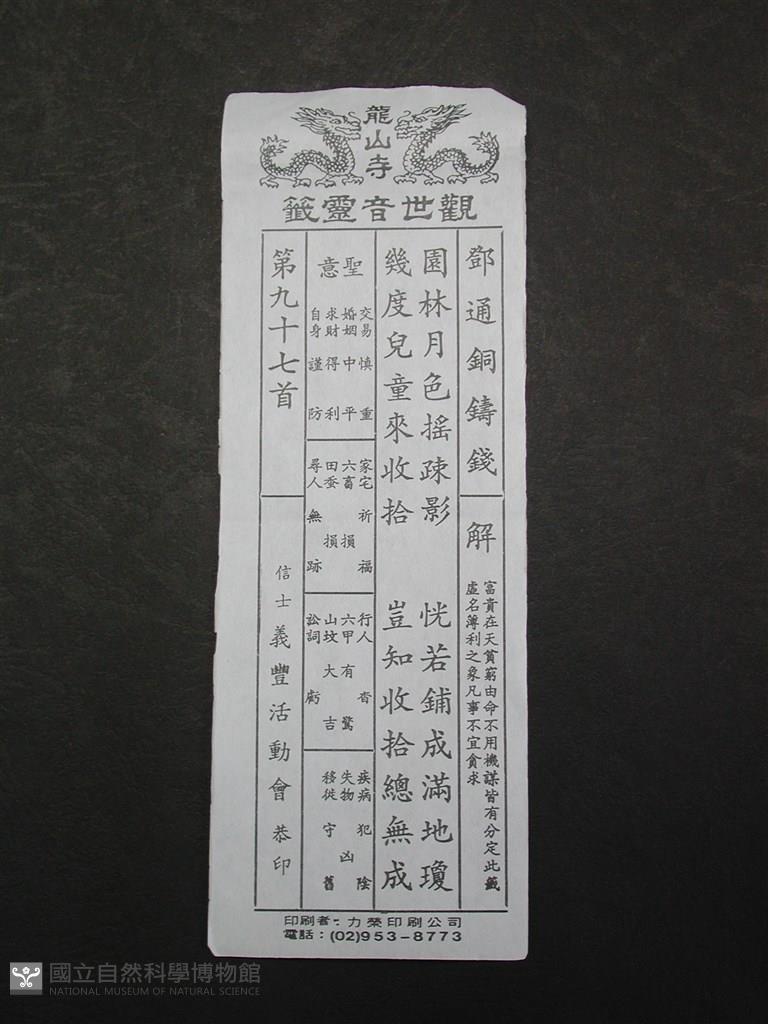 龍山寺
觀世音靈籤
鄧通銅鑄錢
解
富貴在天貧窮由命不用機謀皆有分定此籤
虛名薄利之象凡事不宜貪求
園林月色搖疎影 恍若鋪成滿地瓊
幾度兒童來收拾 豈知收拾總無成
聖意
交易慎重
婚姻中平
求財得利
自身謹防
家宅祈福
六畜損
田蚕損
尋人無跡
行人杳
六甲有驚
山墳大吉
訟詞虧
疾病犯陰
失物凶
移徙守舊
第九十七首
信士義豐活動會恭印
印刷者：力榮印刷公司
電話：(02)953-8773
國立自然科學博物館
NATIONAL MUSEUM OF NATURAL SCIENCE